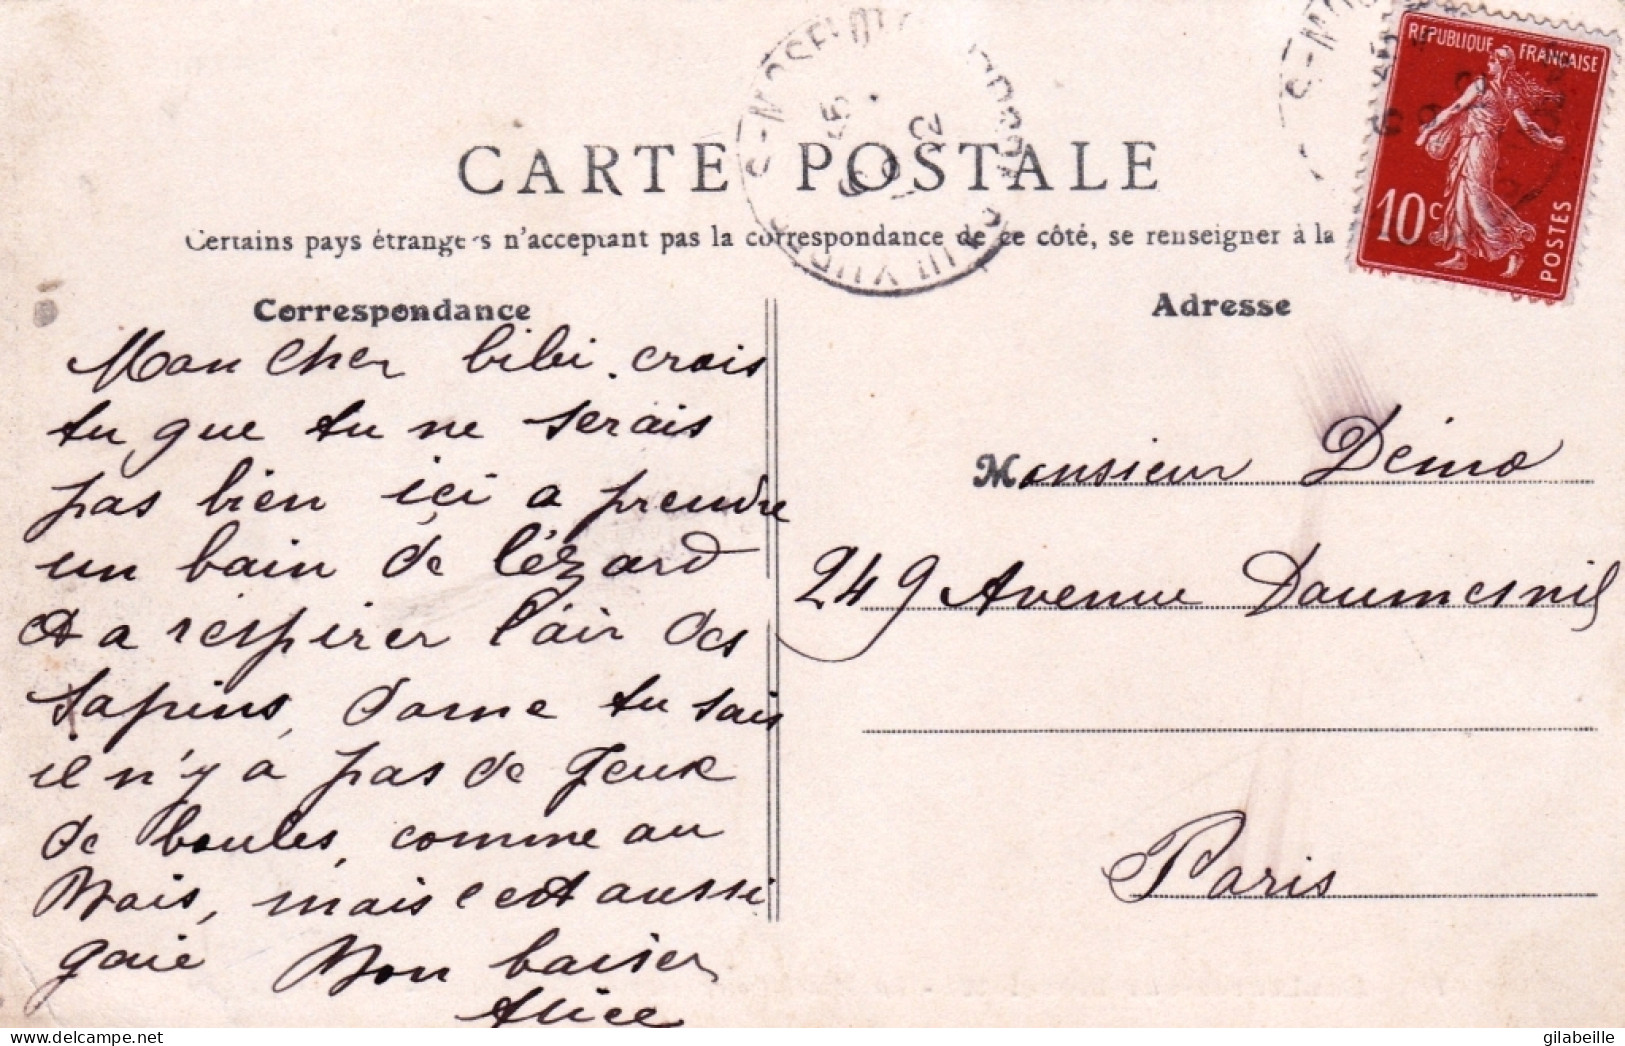 CARTE POSTALE
Certains pays étrangers n'acceptant pas la correspondance de ce côté, se renseigner à la
REPUBLIQUE FRANÇAISE
10c
POSTES
Correspondance
Mon cher bibi. crois
tu que tu ne serais
pas bien içi a prendre
un bain de lézard
et a respirer l'air des
sapins, dame tu sais
il n'y a pas de Jeux
de boules, comme au
Bois, mais c'est aussi
gaie Mon baiser
Alice
Adresse
Monsieur Deino
249 Avenue Daumesnil
Paris
gilabeille